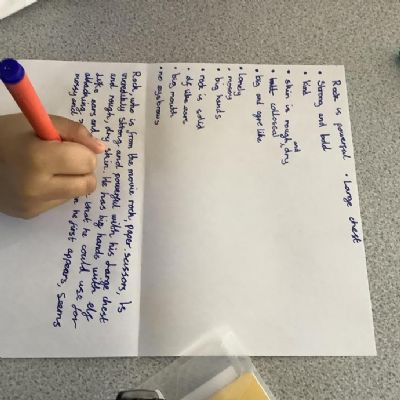 Rock is powerful • Large chest
• Strong and bold
• Kind
• skin is rough and dry
• built colossal
• big and ogre like
• Lonely
• big hands
• rock is solid
• elf like ears
• big mouth
• no eyebrows
Rock, who is from the movie rock, paper, scissors, is
incredibly strong and powerful with his large chest
and rough, dry skin. He has big hands with elf-
like ears and that he could use for
attacking he first appears, seems